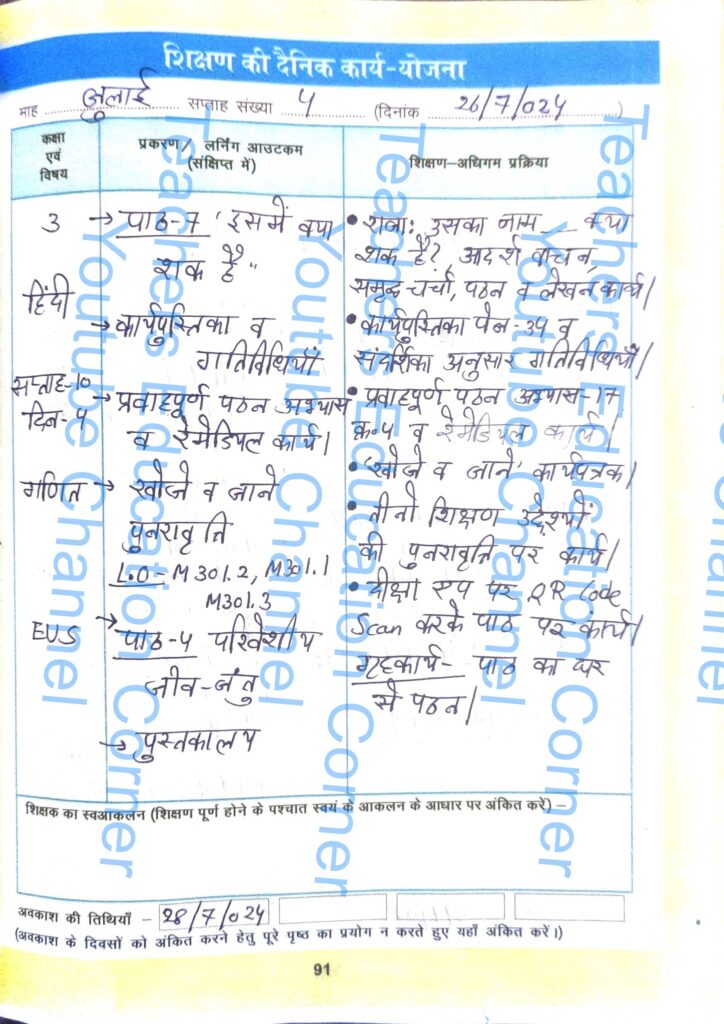 शिक्षण की दैनिक कार्य-योजना
माह जुलाई सप्ताह संख्या 4 (दिनांक 26/7/024)
कक्षा एवं विषय
प्रकरण/ लर्निंग आउटकम (संक्षिप्त में)
शिक्षण-अधिगम प्रक्रिया
3
हिंदी
सप्ताह-10
दिन-4
→ पाठ-7 'इसमें क्या
शक है?"
→ कार्यपुस्तिका व
गतिविधियाँ
→ प्रवाहपूर्ण पठन अभ्यास
व रेमेडियल कार्य।
• राजा: उसका नाम __ क्या
शक है?, आदर्श वाचन,
समृद्ध-चर्चा, पठन व लेखन कार्य।
• कार्यपुस्तिका पेज-34 व
संदर्शिका अनुसार गतिविधियाँ।
• प्रवाहपूर्ण पठन अभ्यास-17
क्र-4 व रेमेडियल कार्य।
गणित
→ खोजे व जाने
पुनरावृत्ति
L.O - M301.2, M301.1
M301.3
• 'खोजे व जाने' कार्यपत्रक।
• तीनो शिक्षण उद्देश्यों
की पुनरावृत्ति पर कार्य।
EVS
→ पाठ-4 परिवेशीय
जीव-जंतु
→ पुस्तकालय
• दीक्षा एप पर QR Code
Scan करके पाठ पर कार्य।
गृहकार्य- पाठ का घर
से पठन।
शिक्षक का स्वआकलन (शिक्षण पूर्ण होने के पश्चात स्वयं के आकलन के आधार पर अंकित करें) –
अवकाश की तिथियाँ – 28/7/024
(अवकाश के दिवसों को अंकित करने हेतु पूरे पृष्ठ का प्रयोग न करते हुए यहाँ अंकित करें।)
91
Teachers Education Corner
Youtube Channel
Teachers Education Corner
Youtube Channel
Teachers Education Corner
Youtube Channel